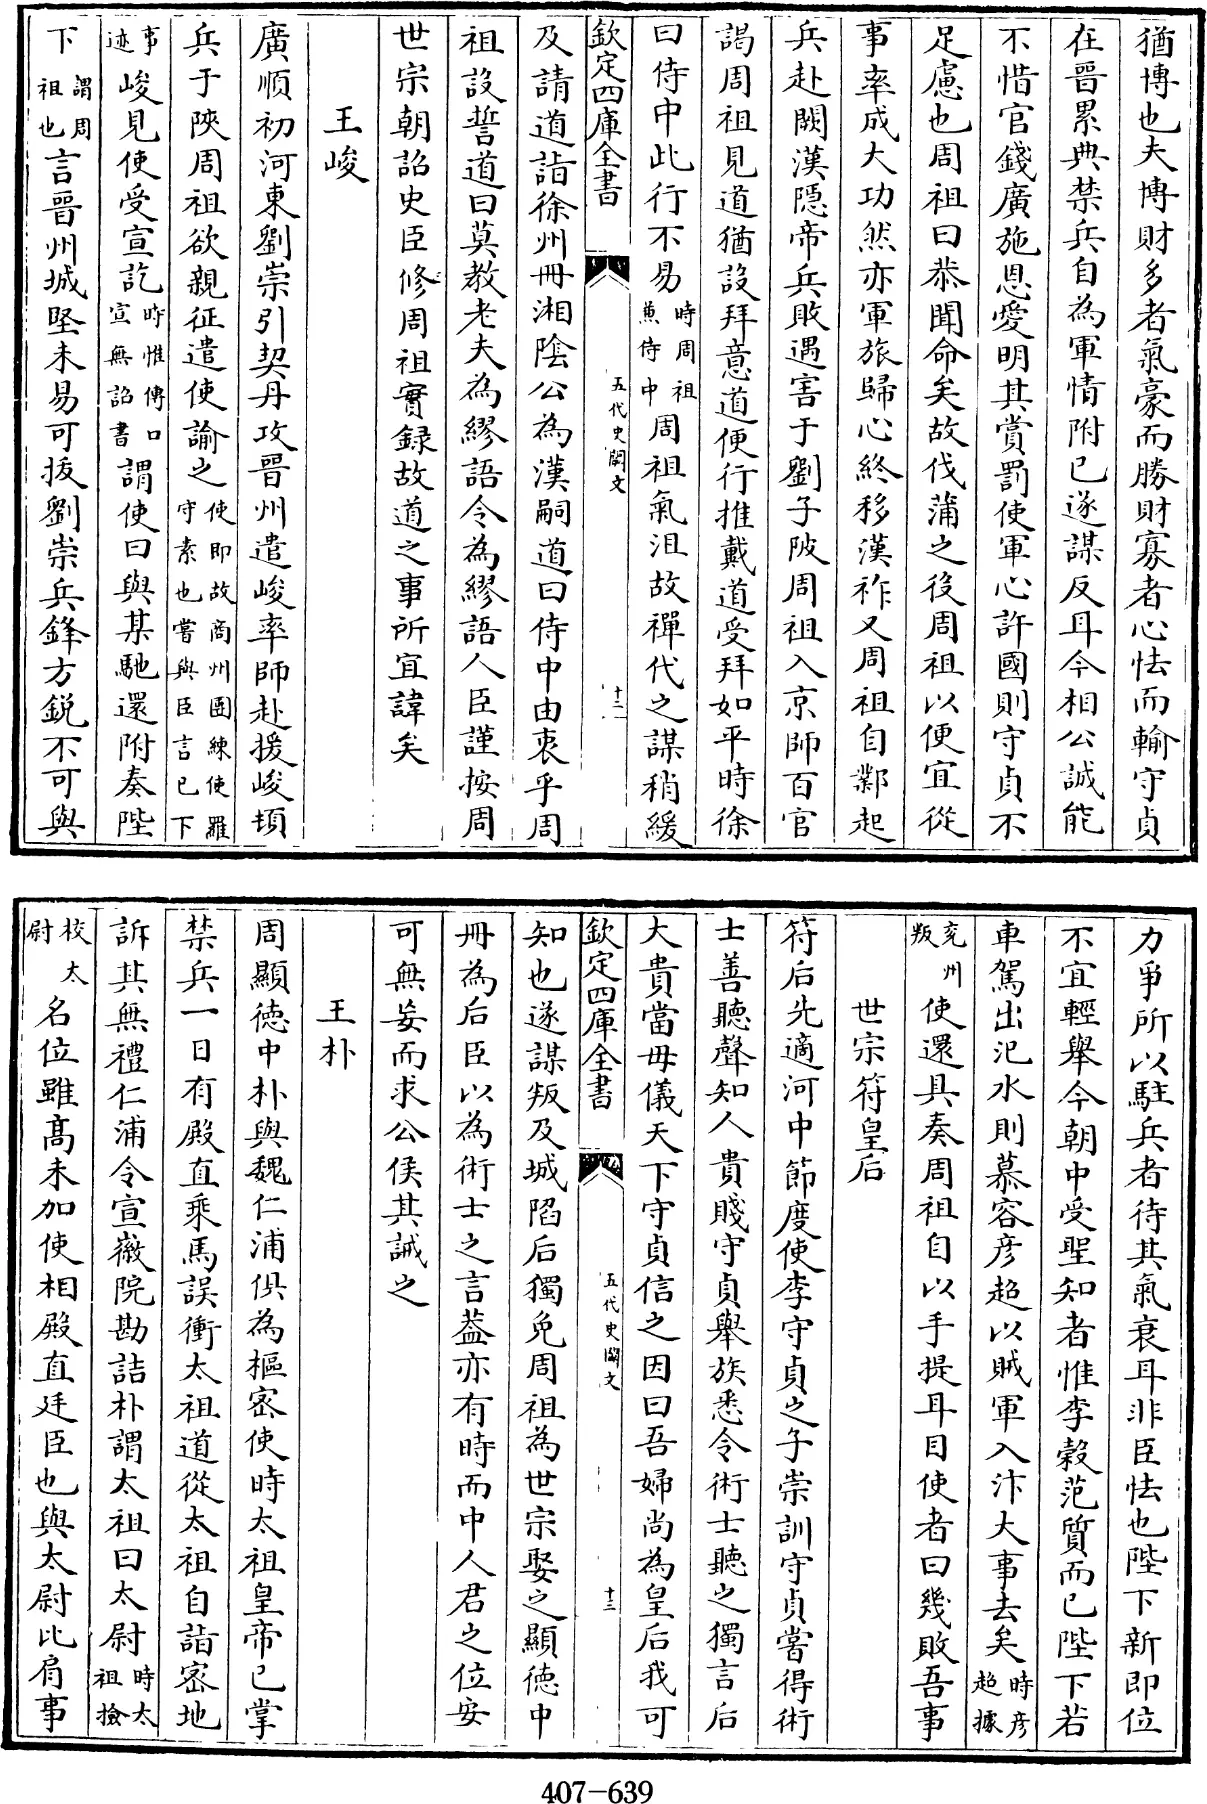 猶博也夫博財多者氣豪而勝財寡者心怯而輸守貞
在晉累典禁兵自為軍情附已遂謀反耳今相公誠能
不惜官錢廣施恩愛明其賞罰使軍心許國則守貞不
足慮也周祖曰恭聞命矣故伐蒲之役周祖以便宜從
事率成大功然亦軍旅歸心終移漢祚又周祖自鄴起
兵赴闕漢隱帝兵敗遇害于劉子陂周祖入京師百官
謁周祖見道猶設拜意道便行推戴道受拜如平時徐
曰侍中此行不易時周祖兼侍中周祖氣沮故禪代之謀稍緩
欽定四庫全書 五代史闕文 十二
及請道詣徐州冊湘陰公為漢嗣道曰侍中由衷乎周
祖設誓道曰莫教老夫為繆語令為繆語人臣謹按周
世宗朝詔史臣修周祖實録故道之事所宜諱矣
王峻
廣順初河東劉崇引契丹攻晉州遣峻率師赴援峻頓
兵于陝周祖欲親征遣使諭之使即故商州團練使羅守素也嘗與臣言已下
事迹峻見使受宣訖時惟傳口宣無詔書謂使曰與某馳還附奏陛
下謂周祖也言晉州城堅未易可拔劉崇兵鋒方鋭不可與
力爭所以駐兵者待其氣衰耳非臣怯也陛下新即位
不宜輕舉今朝中受聖知者惟李穀范質而已陛下若
車駕出汜水則慕容彦超以賊軍入汴大事去矣時彦超據
兖州叛使還具奏周祖自以手提耳目使者曰幾敗吾事
世宗符皇后
符后先適河中節度使李守貞之子崇訓守貞嘗得術
士善聽聲知人貴賤守貞舉族悉令術士聽之獨言后
大貴當母儀天下守貞信之因曰吾婦尚為皇后我可
欽定四庫全書 五代史闕文 十三
知也遂謀叛及城陷后獨免周祖為世宗娶之顯徳中
冊為后臣以為術士之言葢亦有時而中人君之位安
可無妄而求公侯其誡之
王朴
周顯徳中朴與魏仁浦俱為樞宻使時太祖皇帝已掌
禁兵一日有殿直乘馬誤衝太祖道從太祖自詣宻地
訴其無禮仁浦令宣徽院勘詰朴謂太祖曰太尉時太祖撿
校太尉名位雖髙未加使相殿直廷臣也與太尉比肩事
407-639